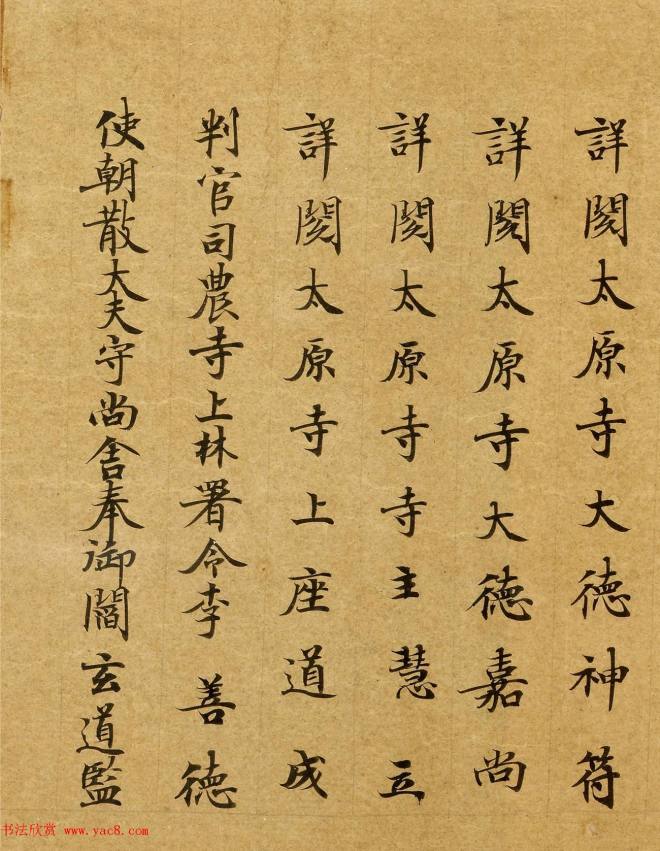 詳閱太原寺大德神符
詳閱太原寺大德嘉尚
詳閱太原寺寺主慧立
詳閱太原寺上座道成
判官司農寺上林署令李善德
使朝散大夫守尚舍奉御閻玄道監
书法欣赏 www.yac8.com